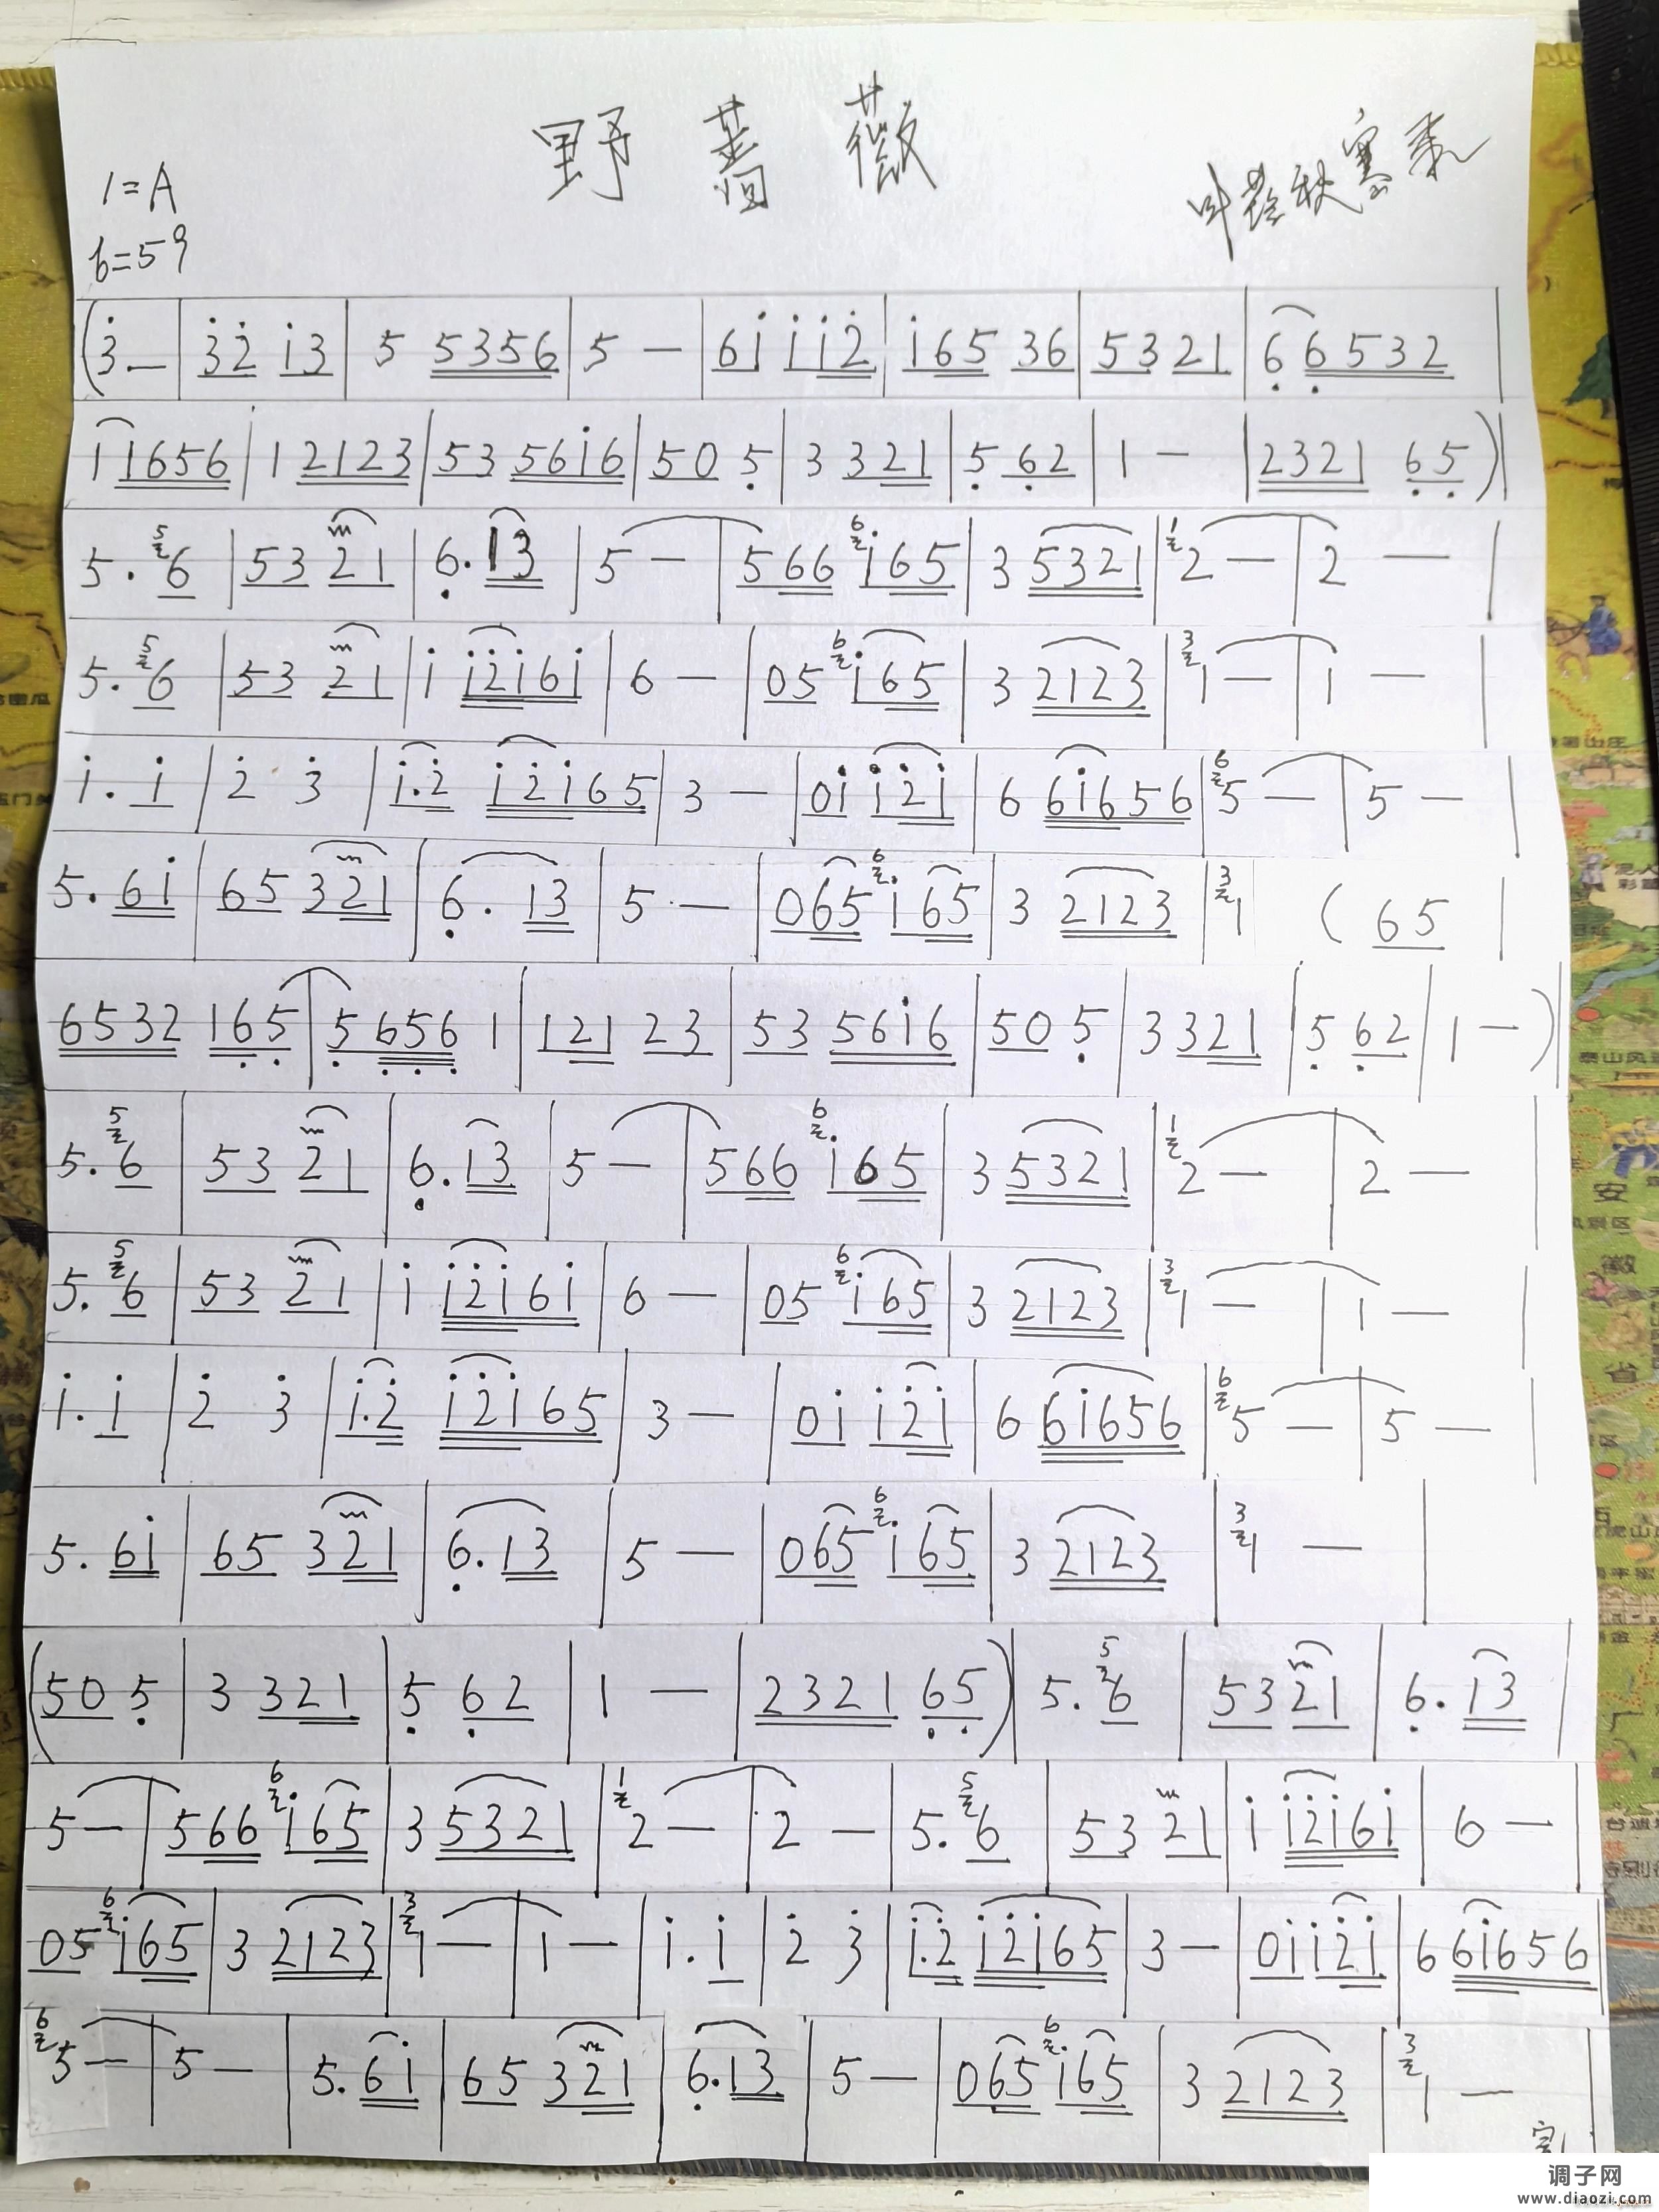 野蔷薇
1=A
6=59
(3̇. — | 3̇2̇ i3 | 5 5356 | 5 — | 6i ii2̇ | i65 36 | 5321 | 6̣ 6̣532 |
1 1656 | 1 2123 | 53 56i6 | 50 5̣ | 3 321 | 5̣ 6̣2 | 1 — | 2321 6̣5̣) |
5. ⁵6 | 53 21 | 6̣. 13 | 5 — | 566 ⁶i65 | 3 5321 | ¹2 — | 2 — |
5. ⁵6 | 53 21 | i i2̇i6i | 6 — | 05 ⁶i65 | 3 2123 | ³1 — | 1 — |
i. i | 2̇ 3̇ | i.2̇ i2̇i65 | 3 — | 0i i2̇i | 6 6i656 | ⁶5 — | 5 — |
5. 6i | 65 321 | 6̣. 13 | 5 — | 065 ⁶i65 | 3 2123 | ³1 (65 |
6532 16̣5̣ | 5̣ 6̣5̣6̣ 1 | 121 23 | 53 56i6 | 50 5̣ | 3 321 | 5̣ 6̣2 | 1 —) |
5. ⁵6 | 53 21 | 6̣. 13 | 5 — | 566 ⁶i65 | 3 5321 | ¹2 — | 2 —
5. ⁵6 | 53 21 | i i2̇i6i | 6 — | 05 ⁶i65 | 3 2123 | ³1 — | 1 — |
i. i | 2̇ 3̇ | i.2̇ i2̇i65 | 3 — | 0i i2̇i | 6 6i656 | ⁶5 — | 5 — |
5. 6i | 65 321 | 6̣. 13 | 5 — | 065 ⁶i65 | 3 2123 | ³1 — |
(50 5̣ | 3 321 | 5̣ 6̣2 | 1 — | 2321 6̣5̣) | 5. ⁵6 | 53 21 | 6̣. 13 |
5 — | 566 ⁶i65 | 3 5321 | ¹2 — | 2 — | 5. ⁵6 | 53 21 | i i2̇i6i | 6 — |
05 ⁶i65 | 3 2123 | ³1 — | 1 — | i. i | 2̇ 3̇ | i.2̇ i2̇i65 | 3 — | 0i i2̇i | 6 6i656 |
⁶5 — | 5 — | 5. 6i | 65 321 | 6̣. 13 | 5 — | 065 ⁶i65 | 3 2123 | ³1 — |
调子网
www.diaozi.com